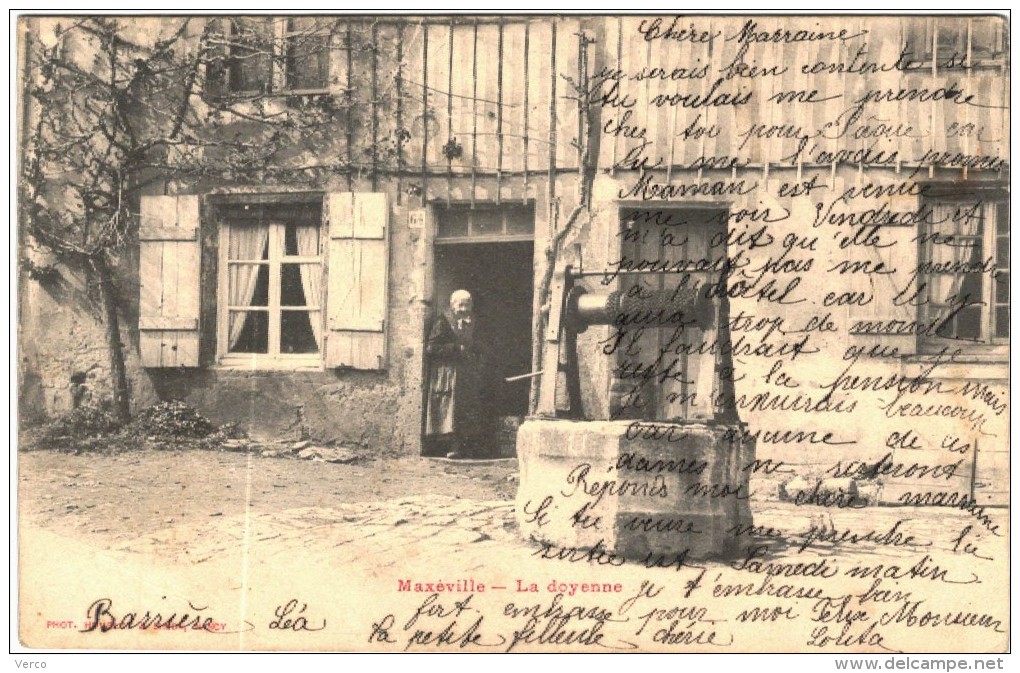 Chère Marraine
je serais bien contente si
tu voulais me prendre
chez toi pour Pâque car
tu me l'avais promis
Maman est venue
me voir Vendredi et
m'a dit qu'elle ne
pouvait pas me prendre
à l'hôtel car il y
aura trop de monde
Il faudrait que je
reste à la pension mais
je m'ennuirais beaucoup
car aucune de ces
dames ne resteront
Réponds moi chère marraine
Si tu veux me prendre la
sortie est Samedi matin
je t'embrasse bien
fort embrasse pour moi Félix Monsieur
la petite filleule chérie Lolita
64
Maxéville — La doyenne
PHOT.
Barrière Léa
Verco
www.delcampe.net